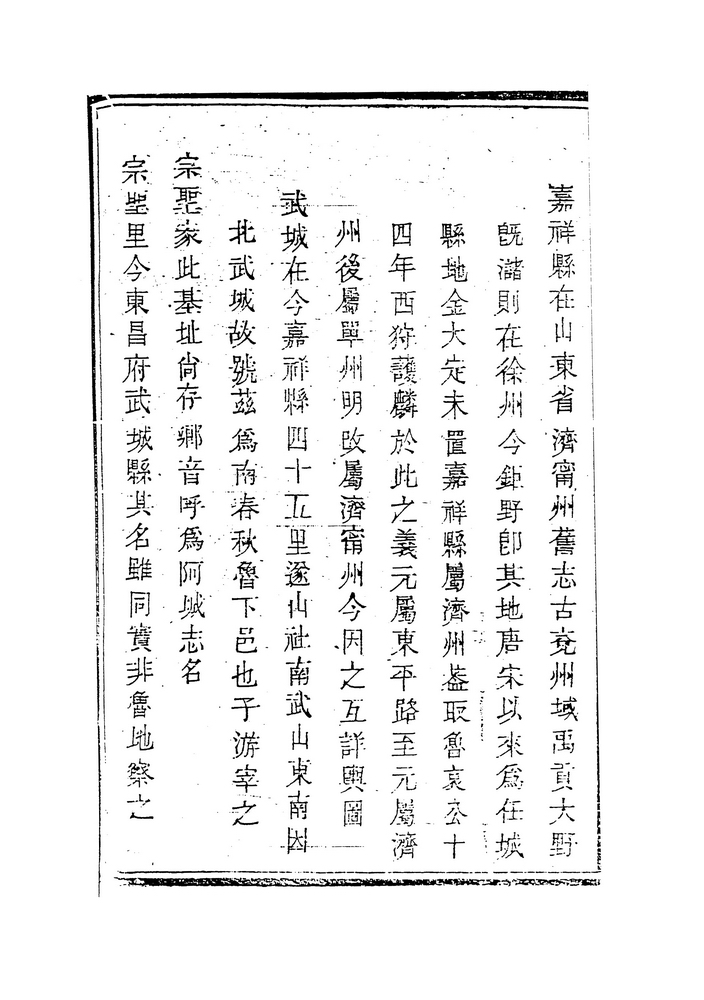 嘉祥縣在山東省濟甯州舊志古兗州域禹貢大野
旣瀦則在徐州今鉅野卽其地唐宋以來爲任城
縣地金大定未置嘉祥縣屬濟州葢取魯哀公十
四年西狩獲麟於此之義元屬東平路至元屬濟
州後屬單州明改屬濟甯州今因之互詳輿圖
武城在今嘉祥縣四十五里遂山社南武山東南因
北武城故號茲爲南春秋魯下邑也子游宰之
宗聖家此基址尙存鄉音呼爲阿城志名
宗聖里今東昌府武城縣其名雖同實非魯地察之